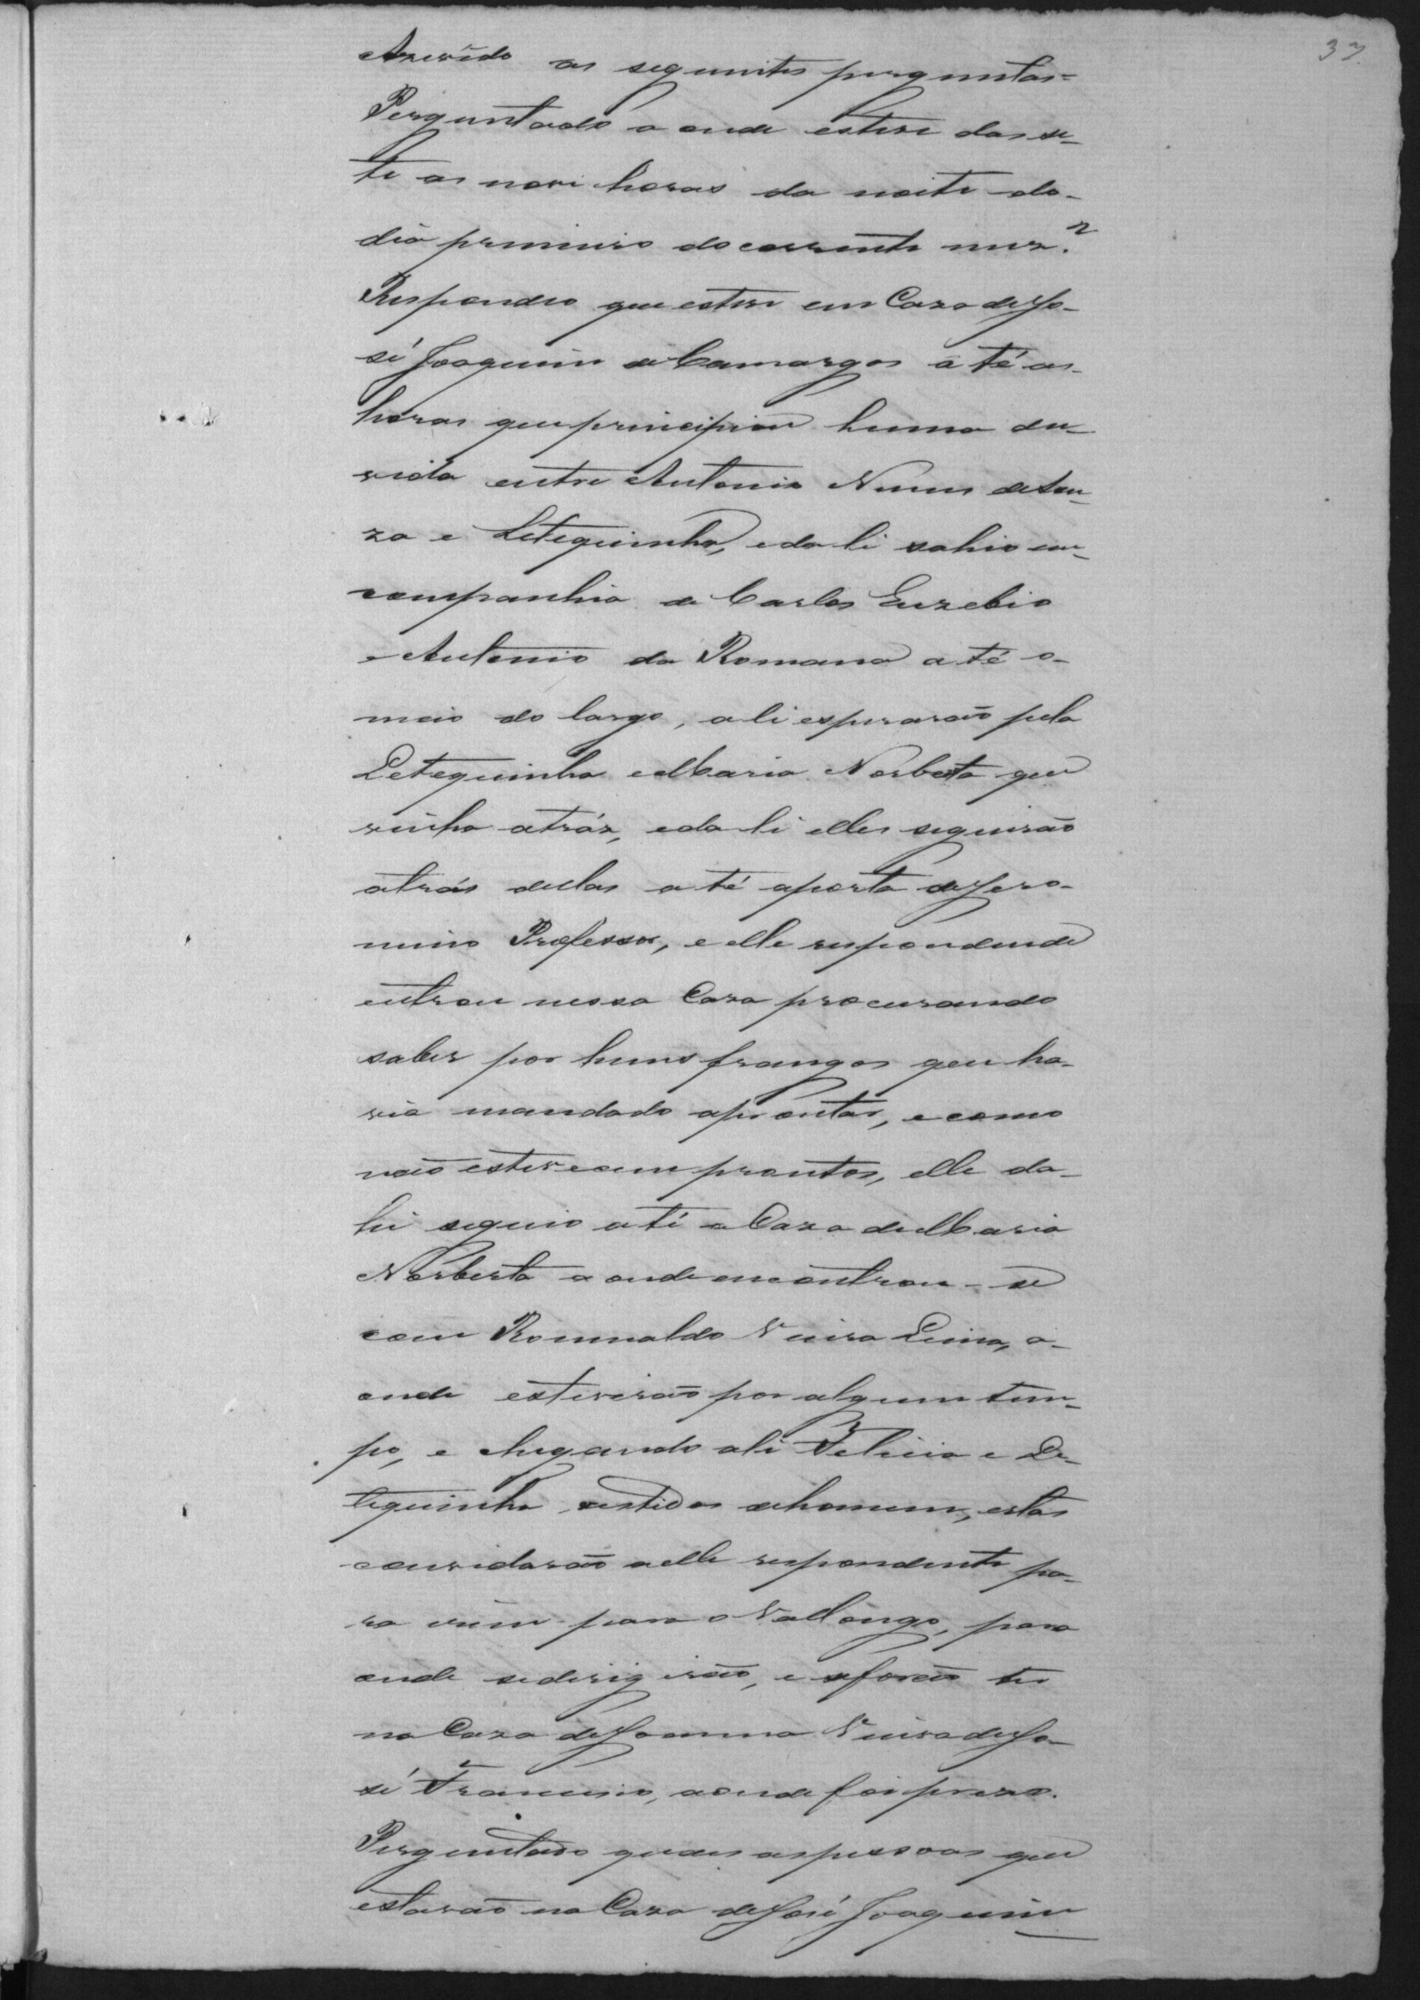 37
Azerêdo as seguintes perguntas =
Perguntado aonde esteve das se-
te as nove horas da noite do-
dia primeiro do corrente mez?
Respondeo que esteve em Caza de Jo-
sé Joaquim de Camargos até as-
horas que principiou huma du-
vida entre Antonio Nunes de Sou-
za e Letequinha, e dali sahio em-
companhia de Carlos Euzebio
e Antonio da Romana até o-
meio do largo, ali esperarão pela
Letequinha e Maria Norberta que
vinha atráz, e dali elles seguirão
atrás dellas até aporta de Jero-
nimo Professor, e elle respondende
entrou nessa Caza procurando
saber por huns frangos que ha-
via mandado aprontar, e como
não estivecem prontos, elle da-
hi seguio até a Caza de Maria
Norberta aonde encontrou-se
com Romualdo Vieira Lima, a-
onde estiverão por algum tem-
po, e chegando ali Felicia e Le-
tequinha vestidas de homem, estas
convidarão a elle respondente pa-
ra virem para o Vallongo, para
onde se derigirão, e se forão ter
na Caza de Joanna Vieira de Jo-
sé Francisco, aonde foi prezo.
Perguntado quaes as pessoas que
estavão na Caza de José Joaquim